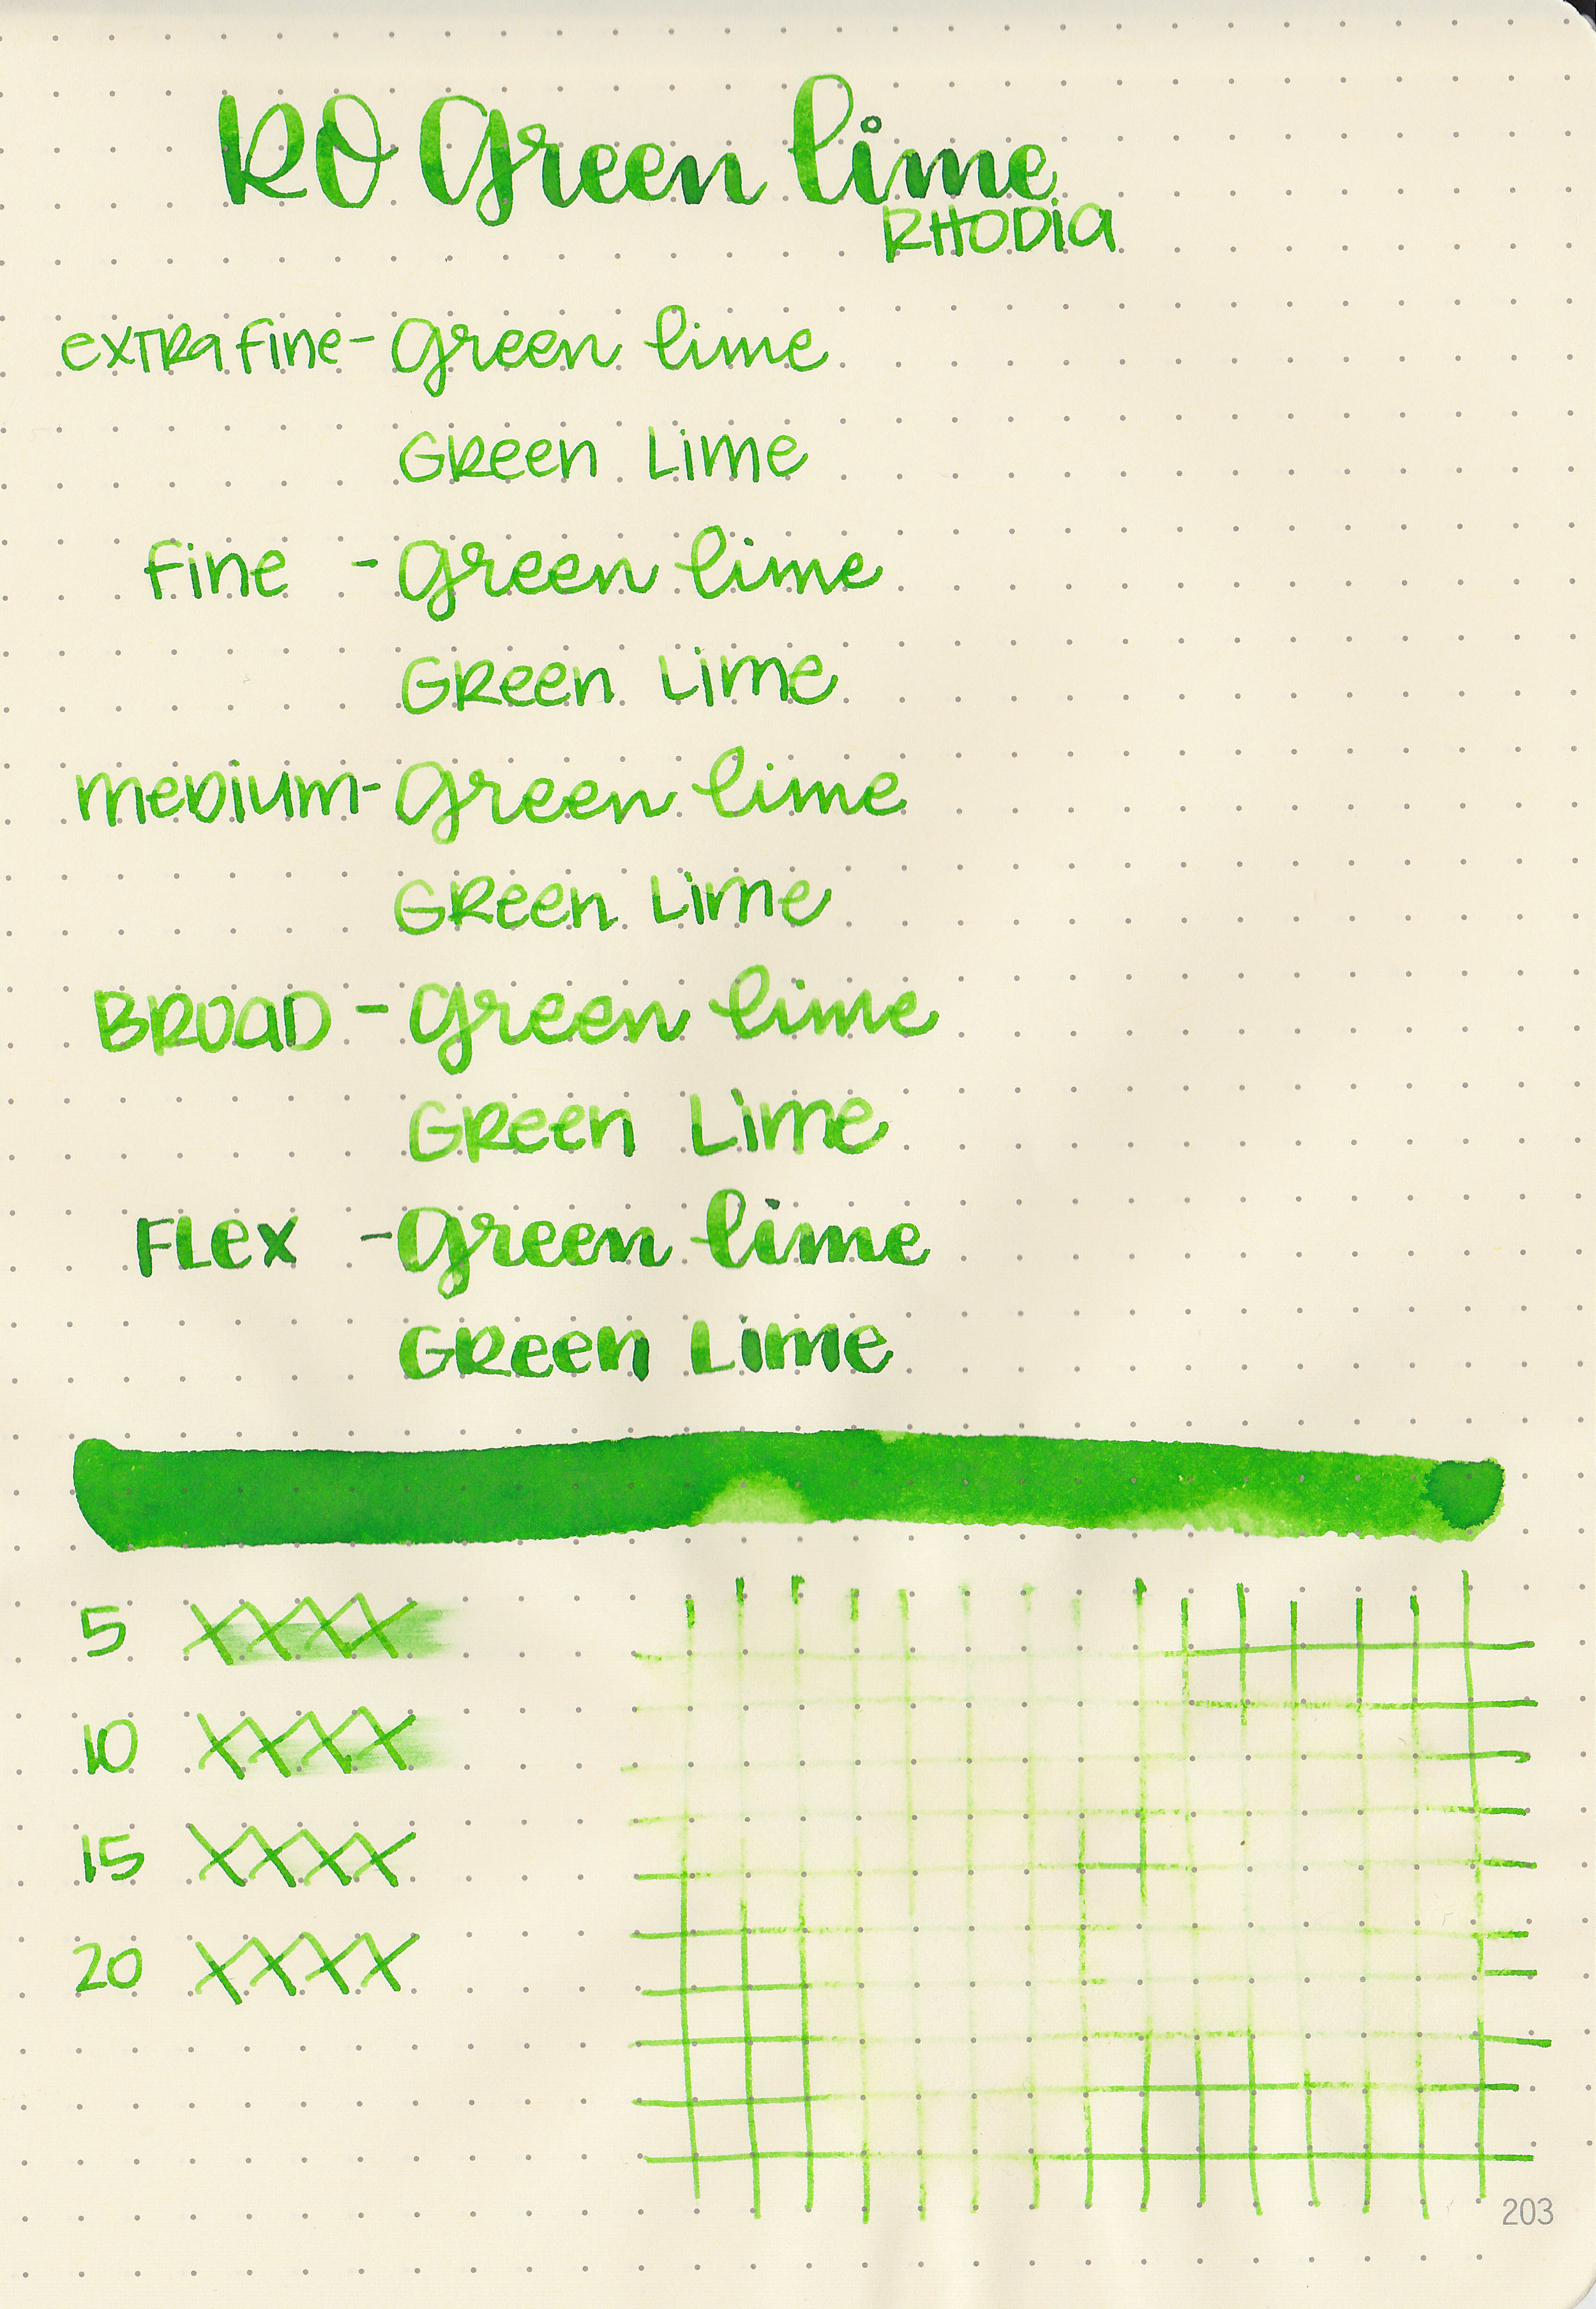 RO Green lime
RHODIA
extra fine - Green lime
Green Lime
fine - Green lime
Green Lime
medium - Green lime
Green Lime
BROAD - Green lime
Green Lime
FLex - Green lime
Green Lime
5 XXXX
10 XXXX
15 XXXX
20 XXXX
203